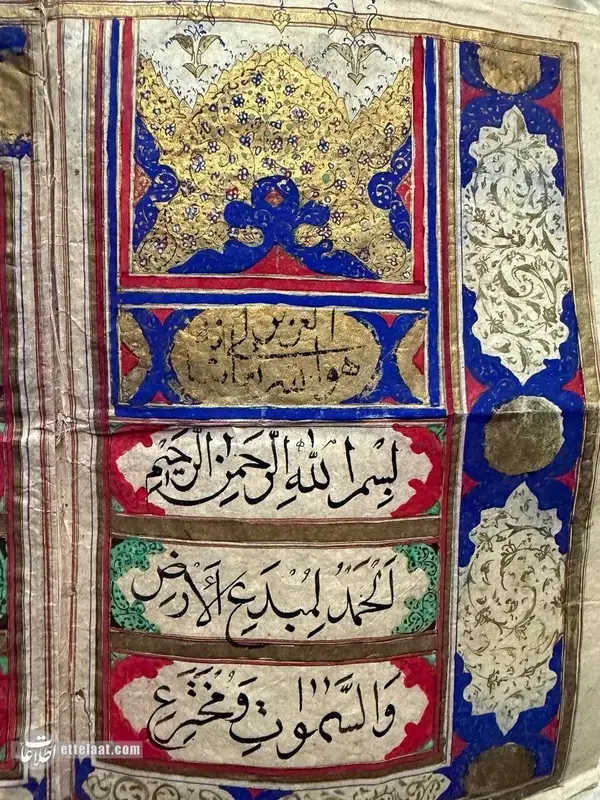 العزیز
هو الله
بِسْمِ اللهِ الرَّحْمٰنِ الرَّحِيْمِ
اَلْحَمْدُ لِمُبْدِعِ الْاَرْضِ
وَالسَّمٰوَاتِ وَمُخْتَرِعِ
اطلاعات ettelaat.com